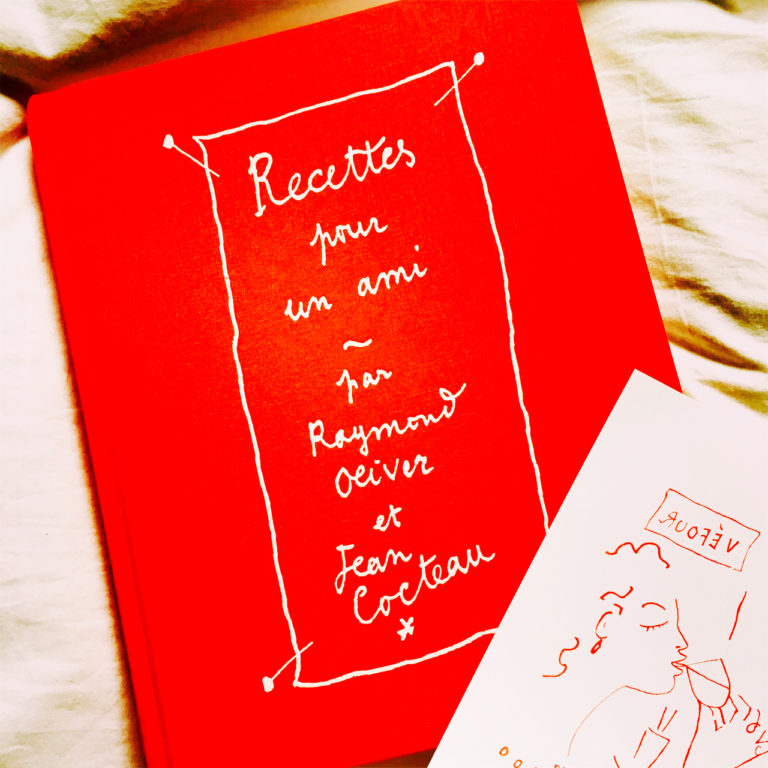 Recettes
pour
un ami
~
par
Raymond
Oliver
et
Jean
Cocteau
*
VÉFOUR